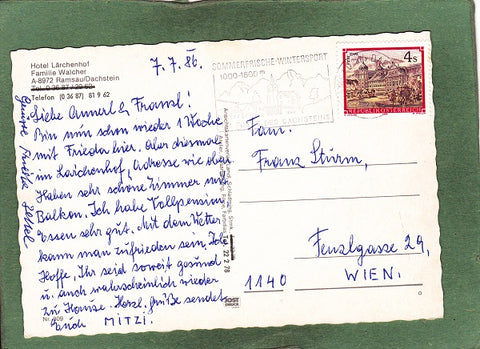 Hotel Lärchenhof
Familie Walcher
A-8972 Ramsau/Dachstein
Tel. 0 36 87 / 22 62
Telefon (0 36 87) 81 9 62
7.7.86.
Liebe Annerl & Franzl!
Bin nun schon wieder 1 Woche
mit Frieda hier. Aber diesmal
im Lärchenhof, Adresse wie oben
Haben sehr schöne Zimmer mit
Balkon. Ich habe Vollpension
Essen sehr gut. Mit dem Wetter
kann man zufrieden sein. Ich
Hoffe, Ihr seid soweit gesund
u. auch wahrscheinlich wieder
zu Hause. Herzl. Grüße sendet
Euch MITZI.
SOMMERFRISCHE-WINTERSPORT
4 S
REPUBLIK ÖSTERREICH
Fam.
Franz Stürm,
Fenzlgasse 29,
1140 WIEN.